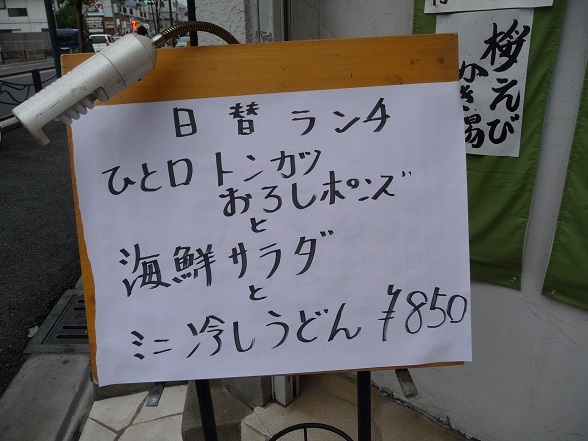 日替ランチ
ひと口トンカツ
おろしポンズ
と
海鮮サラダ
と
ミニ冷しうどん ¥850
桜えび
かき揚